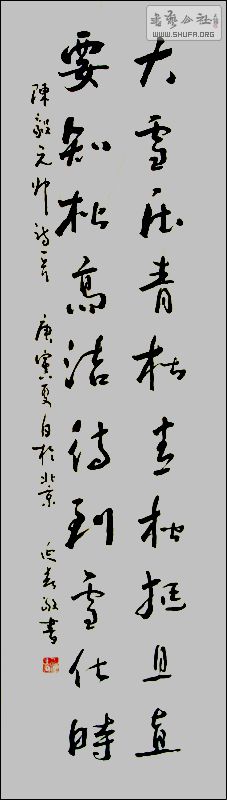 書藝公社
WWW.SHUFA.ORG
大雪压青松青松挺且直
要知松高洁待到雪化時
陳毅元帅诗一首 庚寅夏日於北京 敬書